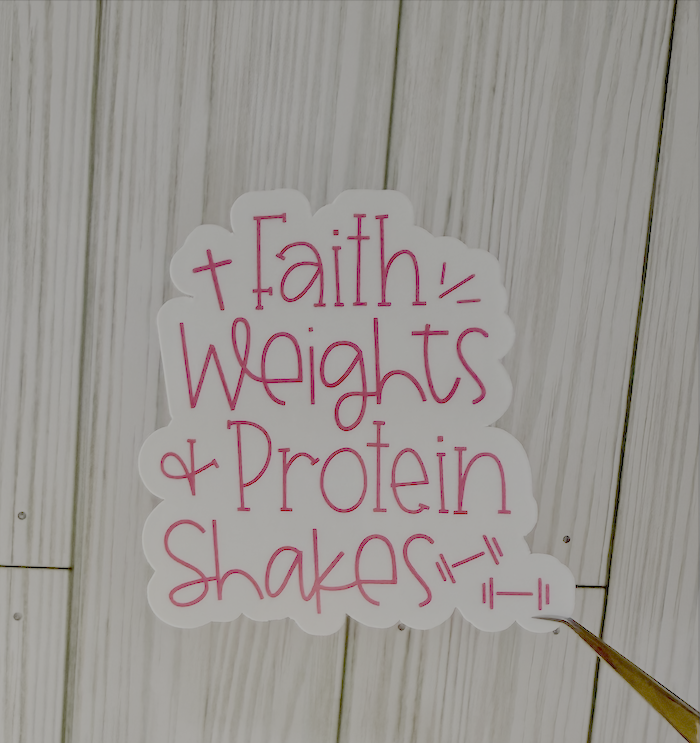 Faith
Weights
& Protein
Shakes